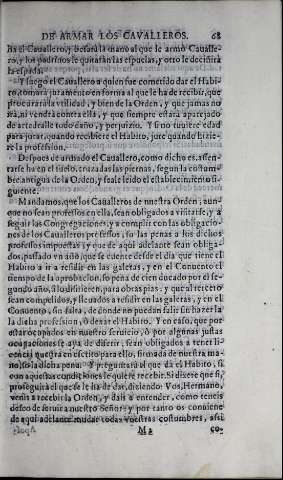 DE ARMAR LOS CAVALLEROS. 68
ha el Cauallero, y besará la mano al que le armó Cauallero,
y los padrinos le quitarán las espuelas, y otro le ceñirá
la espada.
Y luego el Cauallero a quien fue cometido dar el Habito,
tomará juramento en forma al que le ha de recibir, que
procurará la vtilidad, y bien de la Orden, y que jamas no
irá, ni vendrá contra ella, y que siempre estará aparejado
de arredralle todo daño, y perjuizio. Y si no tuuiere edad
para jurar, quando recibiere el Habito, jure quando hiziere
la profession.
Despues de armado el Cauallero, como dicho es, assentarse
ha en el suelo, cruzadas las piernas, segun la costumbre
antigua de la Orden, y seale leido el establecimiento siguiente.
Mandamos, que los Caualleros de nuestra Orden, aunque
no sean professos en ella, sean obligados a visitarse, y a
seguir las Congregaciones, y a cumplir con las obligaciones
de los Caualleros professos, so las penas a los dichos
professos impuestas: y que de aqui adelante sean obligados,
passado vn año, que se cuente desde el dia que tiene el
Habito a ir a residir en las galeras, y en el Conuento el
tiempo de la aprobacion, so pena de cien ducados por el segundo
año, si lo difirieren, para obras pias, y que al tercero
sean compelidos, y lleuados a residir en las galeras, y en el
Conuento, sin falta, de donde no puedan salir sin hazer la
la dicha profession, ò dexar el Habito. Y en caso, que por
estar ocupados en nuestro seruicio, ò por algunas justas
ocupaciones se aya de diferir, sean obligados a tener licencia
nuestra en escrito para ello, firmada de nuestra mano,
so la dicha pena. Y preguntará el que da el Habito, si
con aquestas condiciones le quiere recebir. Si dixere que si,
proseguirá el que se le ha de dar, diziendo: Vos, Hermano,
venis a recebir la Orden, y dais a entender, como teneis
desseo de seruir a nuestro Señor: y por tanto os conuiene
de aqui adelante mudar todas vuestras costumbres, assi
M 2 co-